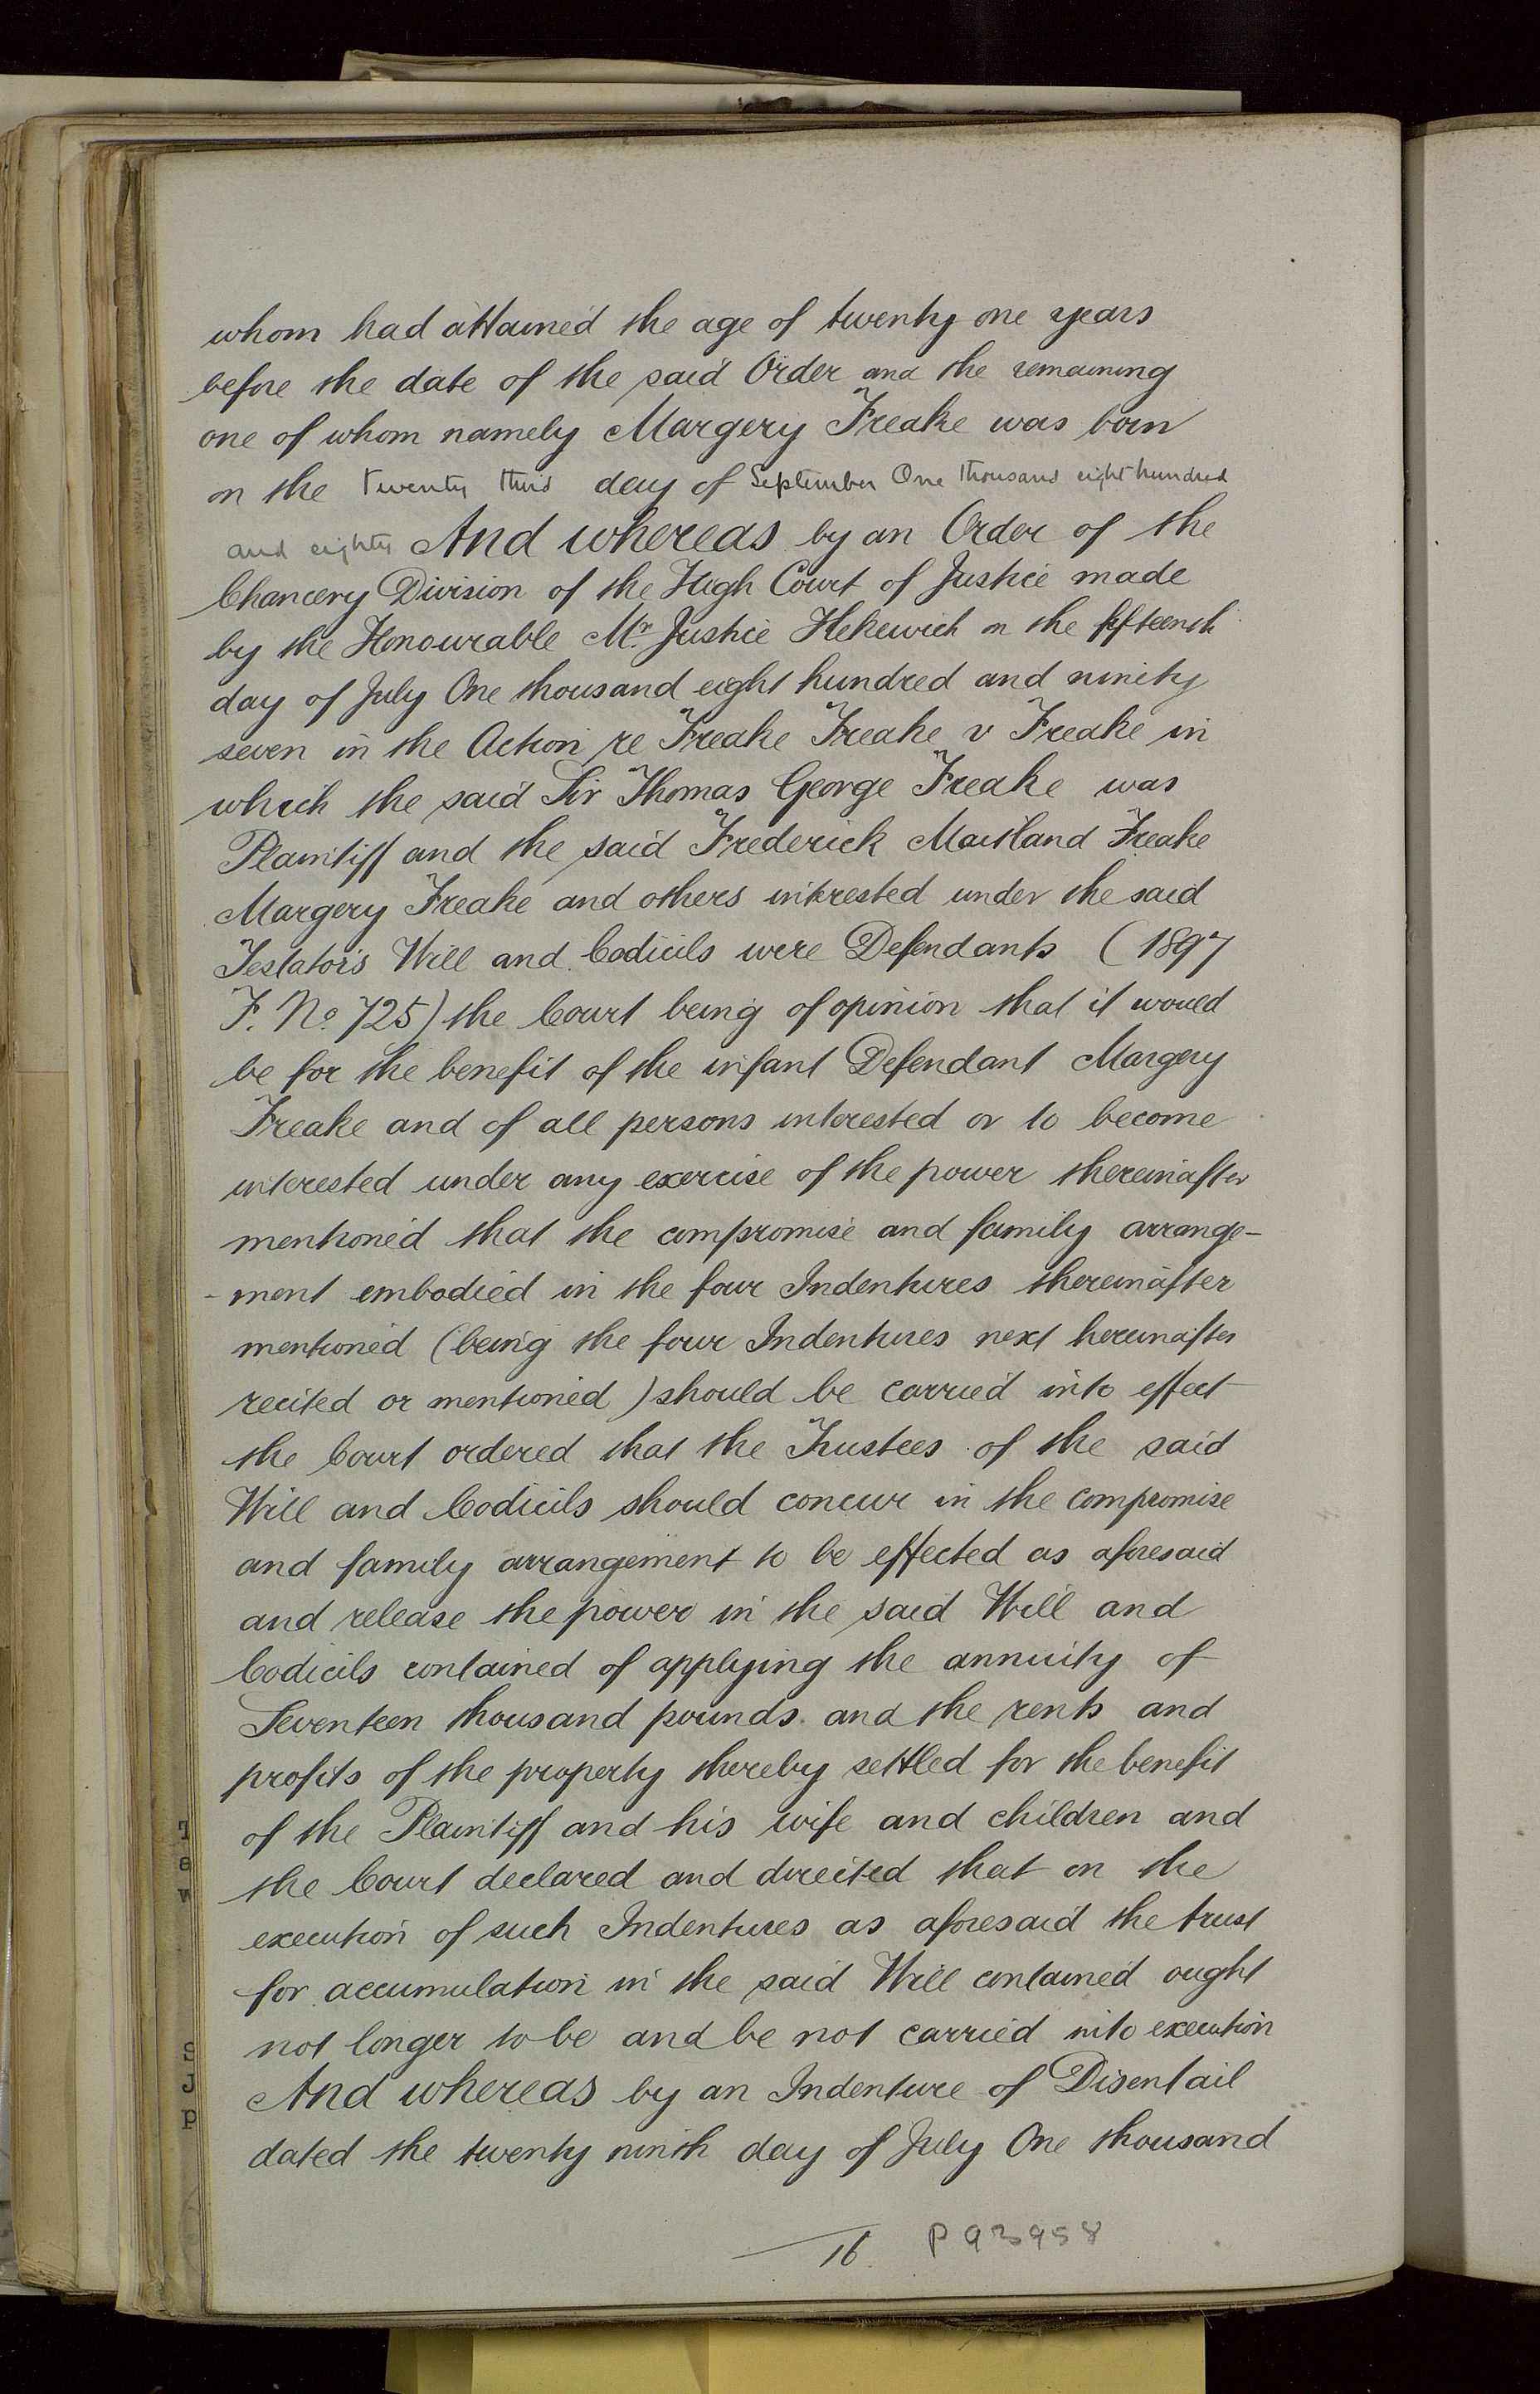 whom had attained the age of twenty one years
before the date of the said Order and the remaining
one of whom namely Margery Freake was born
on the twenty third day of September One thousand eight hundred
and eighty And whereas by an Order of the
Chancery Division of the High Court of Justice made
by the Honourable Mr. Justice Kekewich on the fifteenth
day of July One thousand eight hundred and ninety
seven in the Action re Freake Freake v Freake in
which the said Sir Thomas George Freake was
Plaintiff and the said Frederick Maitland Freake
Margery Freake and others interested under the said
Testator's Will and Codicils were Defendants (1897
F. No. 725) the Court being of opinion that it would
be for the benefit of the infant Defendant Margery
Freake and of all persons interested or to become
interested under any exercise of the power thereinafter
mentioned that the compromise and family arrange-
-ment embodied in the four Indentures thereinafter
mentioned (being the four Indentures next hereinafter
recited or mentioned) should be carried into effect
the Court ordered that the Trustees of the said
Will and Codicils should concur in the compromise
and family arrangement to be effected as aforesaid
and release the power in the said Will and
Codicils contained of applying the annuity of
Seventeen thousand pounds and the rents and
profits of the property thereby settled for the benefit
of the Plaintiff and his wife and children and
the Court declared and directed that on the
execution of such Indentures as aforesaid the trust
for accumulation in the said Will contained ought
not longer to be and be not carried into execution
And whereas by an Indenture of Disentail
dated the twenty ninth day of July One thousand
16 P93958